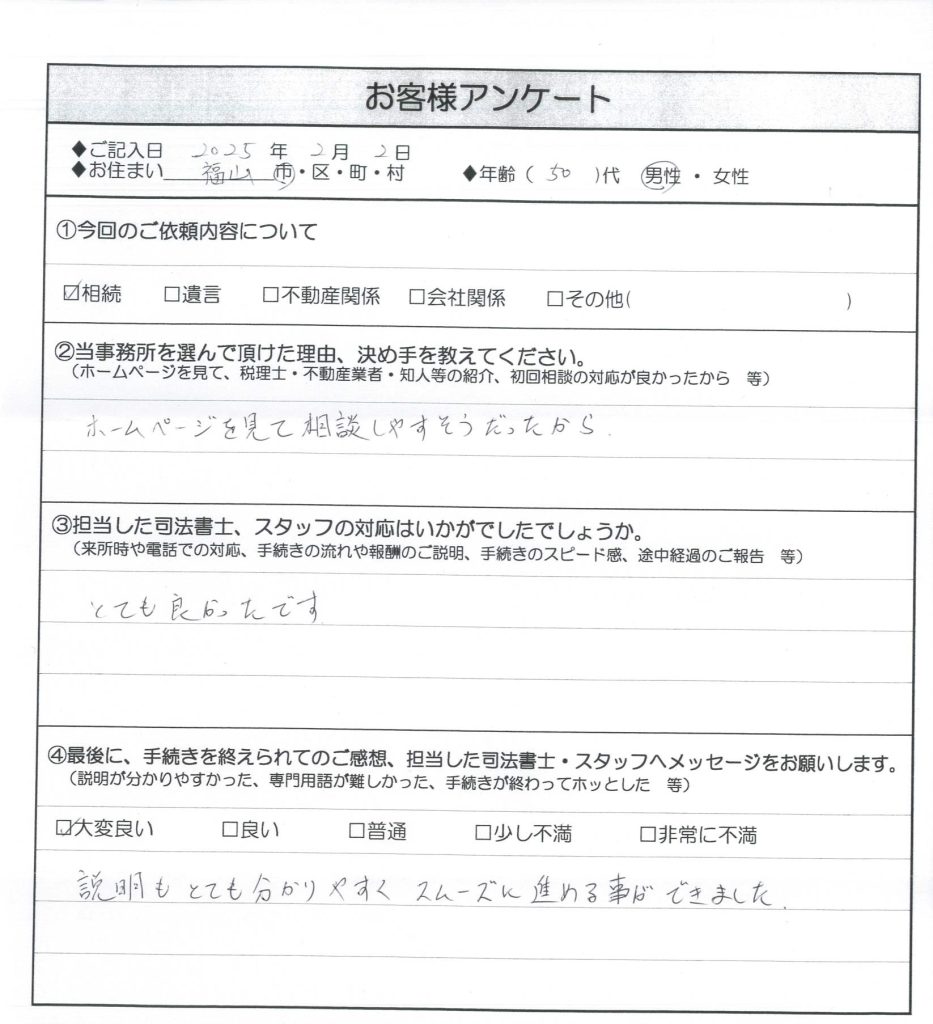 お客様アンケート
◆ご記入日 2025 年 2 月 2 日
◆お住まい 福山 市・区・町・村 ◆年齢( 50 )代 男性 ・ 女性
①今回のご依頼内容について
☑相続 □遺言 □不動産関係 □会社関係 □その他( )
②当事務所を選んで頂けた理由、決め手を教えてください。
(ホームページを見て、税理士・不動産業者・知人等の紹介、初回相談の対応が良かったから 等)
ホームページを見て相談しやすそうだったから.
③担当した司法書士、スタッフの対応はいかがでしたでしょうか。
(来所時や電話での対応、手続きの流れや報酬のご説明、手続きのスピード感、途中経過のご報告 等)
とても良かったです
④最後に、手続きを終えられてのご感想、担当した司法書士・スタッフへメッセージをお願いします。
(説明が分かりやすかった、専門用語が難しかった、手続きが終わってホッとした 等)
☑大変良い □良い □普通 □少し不満 □非常に不満
説明もとても分かりやすく スムーズに進める事ができました.